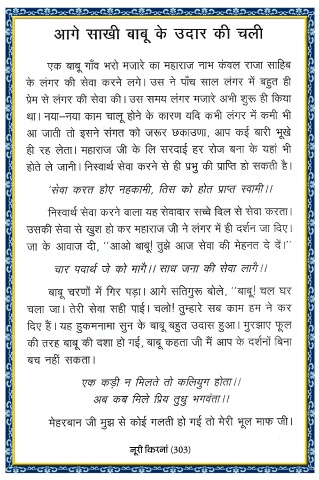 आगे साखी बाबू के उदार की चली
एक बाबू गाँव भरो मजारे का महाराज नाभ कंवल राजा साहिब
के लंगर की सेवा करने लगे। उस ने पाँच साल लंगर में बहुत ही
प्रेम से लंगर की सेवा की। उस समय लंगर मजारे अभी शुरू ही किया
था। नया–नया काम चालू होने के कारण यदि कभी लंगर में कमी भी
आ जाती तो इसने संगत को जरूर छकाउणा, आप कई बारी भूखे
ही रह लेता। महाराज जी के लिए सरदाई हर रोज बना के यहां भी
होते ले जानी। निस्वार्थ सेवा करने से ही प्रभु की प्राप्ति हो सकती है।
'सेवा करत होए नहकामी, तिस को होत प्राप्त स्वामी।।
निस्वार्थ सेवा करने वाला यह सेवादार सच्चे दिल से सेवा करता।
उसकी सेवा से खुश हो कर महाराज जी ने लंगर में ही दर्शन जा दिए।
जा के आवाज दी, ''आओ बाबू! तुझे आज सेवा की मेहनत दे दें।''
चार पदार्थ जे को मागै।। साध जना की सेवा लागै।।
बाबू चरणों में गिर पड़ा। आगे सतिगुरू बोले, ''बाबू! चल घर
चला जा। तेरी सेवा सही पाई। चलो! तुम्हारे सब काम हम ने कर
दिए हैं। यह हुकमनामा सुन के बाबू बहुत उदास हुआ। मुरझाए फूल
की तरह बाबू की दशा हो गई, बाबू कहता जी मैं आप के दर्शनों बिना
बच नहीं सकता।
एक कड़ी न मिलते तो कलियुग होता।।
अब कब मिले प्रिय तुधु भगवंता।।
मेहरबान जी मुझ से कोई गलती हो गई तो मेरी भूल माफ जी।
नूरी किरनां (303)